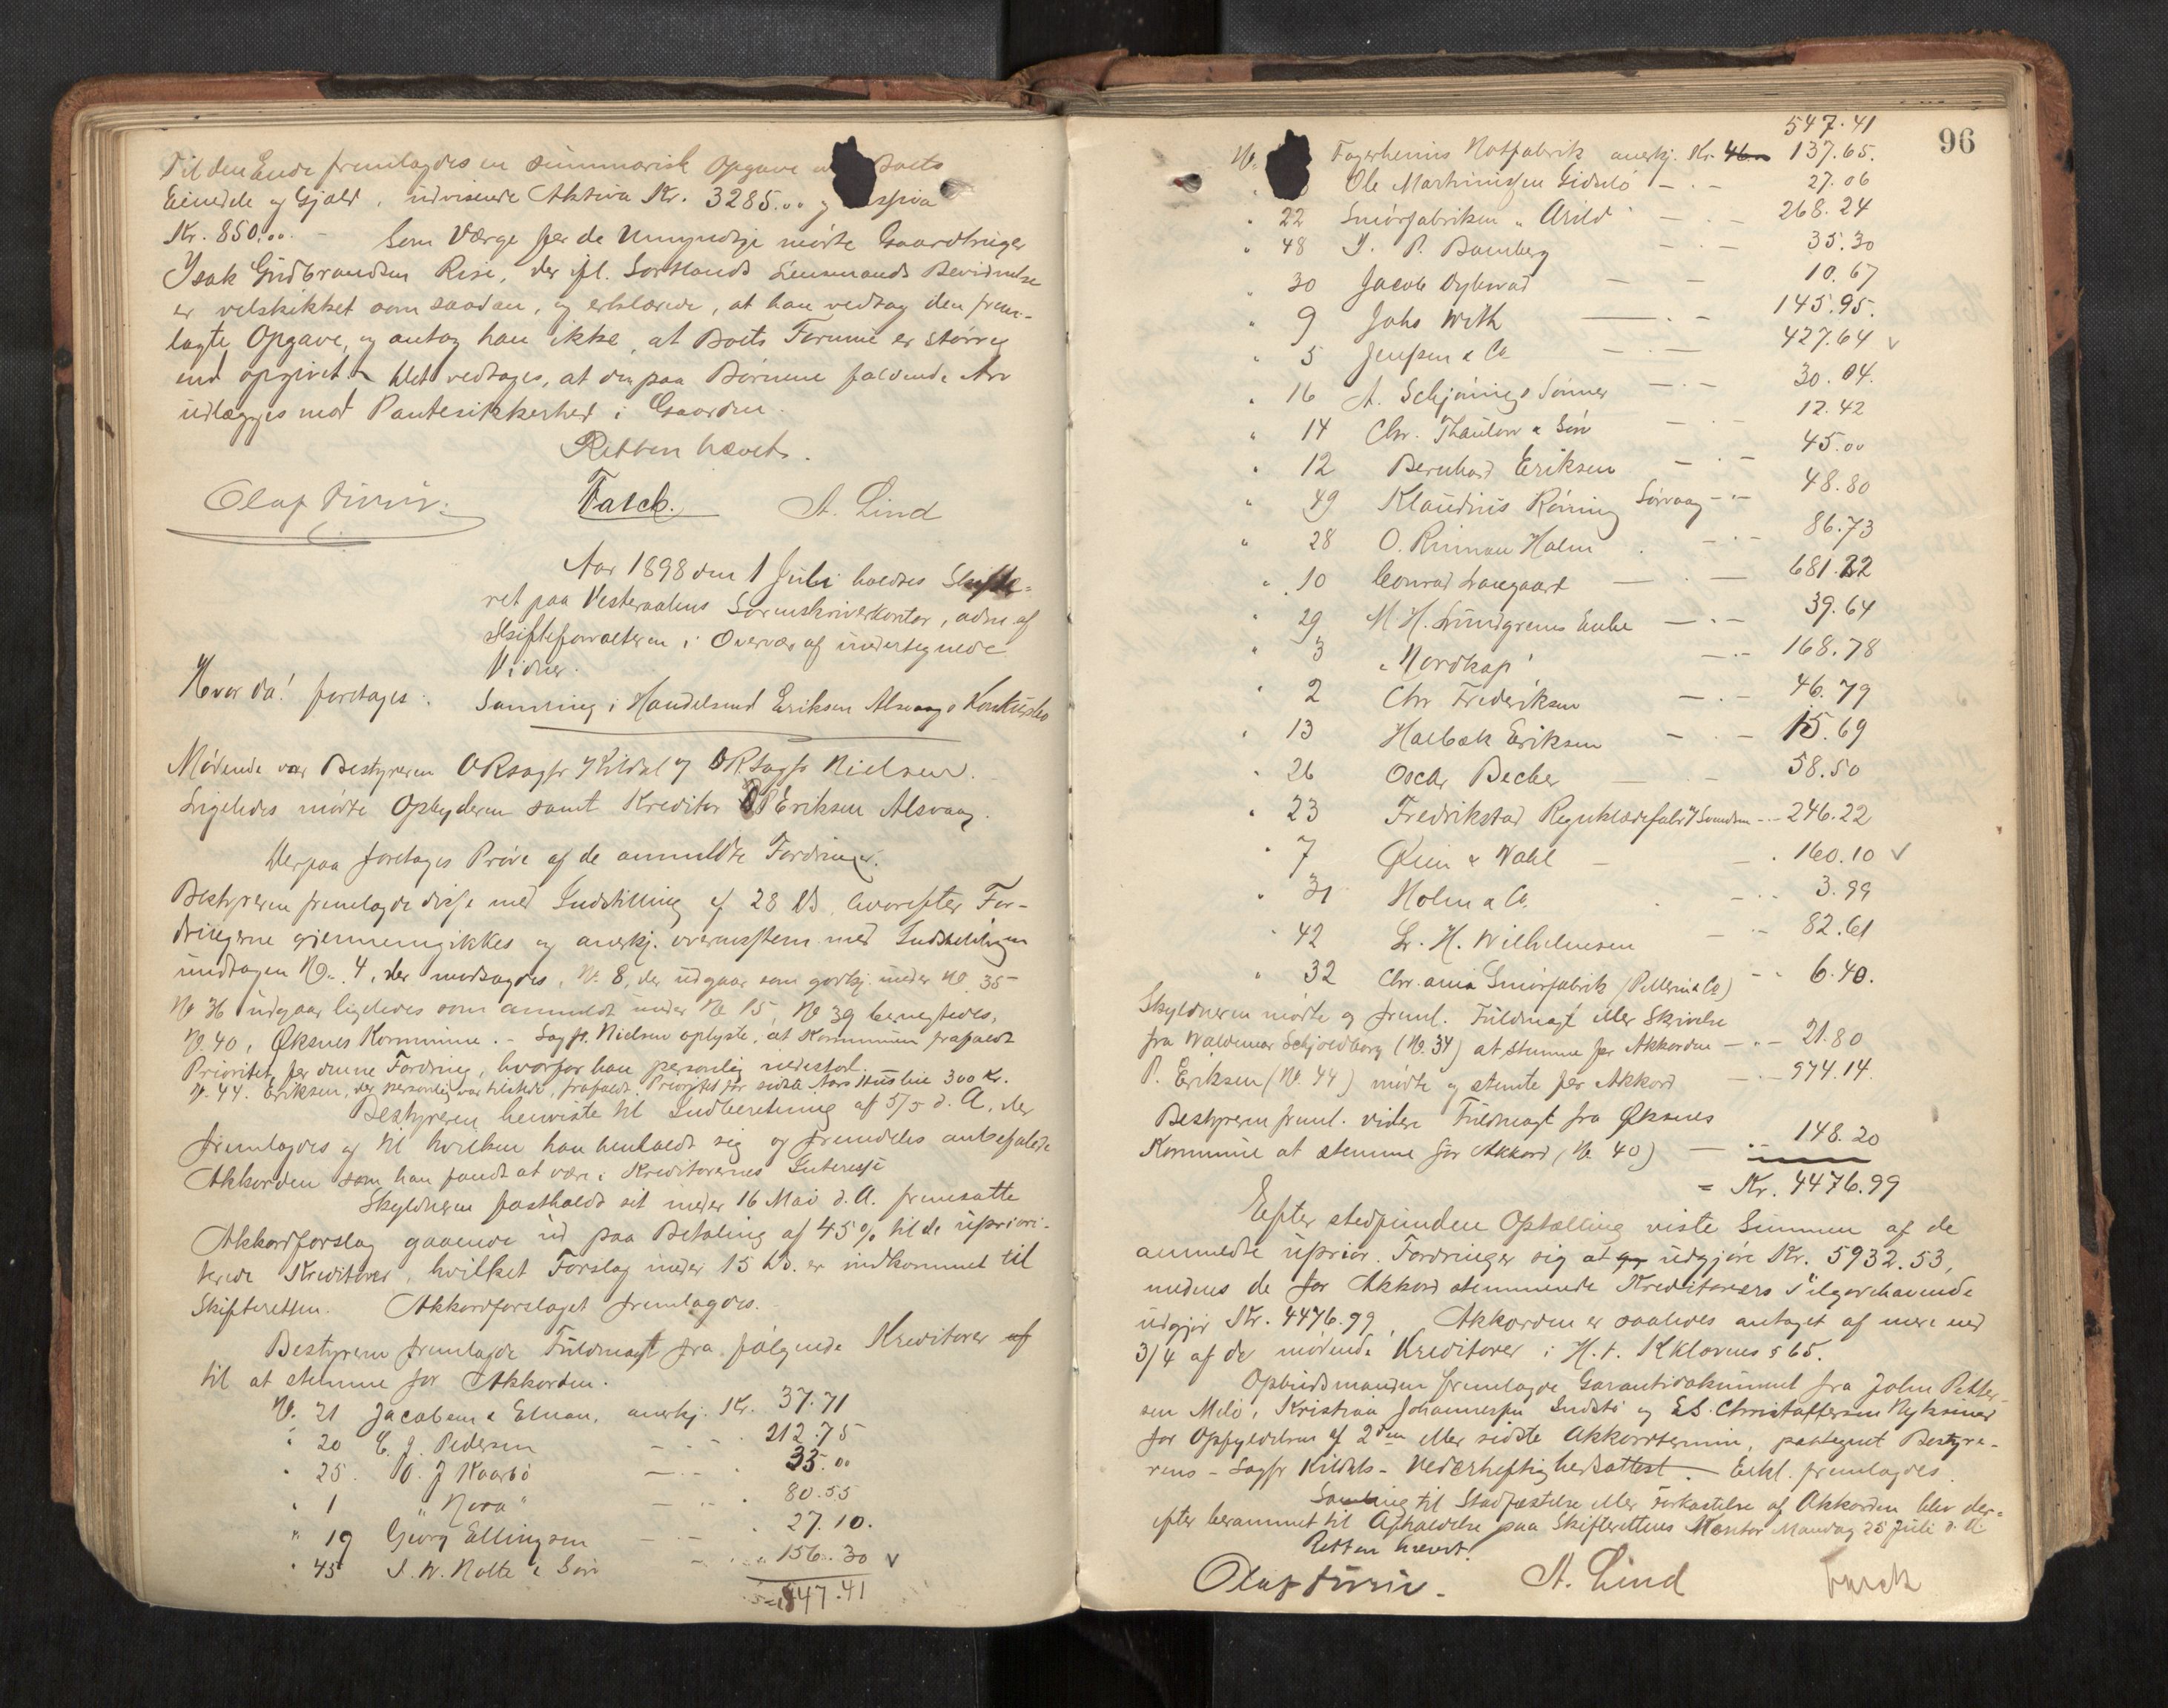 Til den Ende fremlagdes en summarisk Opgave Boets
Eiendele og Gjæld, udvisende Aktiva Kr. 3285.00 og
Kr. 850.00. - Som Værge for de Umyndige mødte Gaardbruger
Isak Gudbrandsen Rise, der ifl. Sortlands Lensmands Bevidnelse
er velskikket som saadan, og erklærede, at han vedtog den frem-
lagte Opgave, og antog han ikke, at Boets Formue er større
end opgivet. Det vedtages, at den paa Børnene faldende Arv
udlægges mod Pantesikkerhed i Gaarden.
Retten hævet.
Olaf Falck. A. Lind
Aar 1898 den 1 Juli holdtes Skifte-
ret paa Vesteraalens Sorenskriverkontor, adm. af
Skifteforvalteren i Overvær af undertegnede
Vidner.
Hvor da! foretages: Samling i Handelsmd Eriksen Alsvaags Konkursbo
Mødende var Bestyreren ORsagfr Kildal og ORsagfr Nielsen.
Ligeledes mødte Opbyderen samt Kreditor P Eriksen Alsvaag.
Derpaa foretages Prøve af de anmeldte Fordringer.
Bestyreren fremlagde disse med Indstilling af 28 ds, hvorefter For-
dringerne gjennemgikkes og anerkj. overensstem. med Indstillingen
undtagen No. 4, der modsagdes, No. 8, der udgaar som godkj. under No. 35
No 36 udgaar ligeledes som anmeldt under No 15, No 39 benegtedes,
No. 40, Øksnes Kommune. - Sagfr. Nielsen oplyste, at Kommunen frafaldt
Prioritet for denne Fordring, hvorfor han personlig indestod.
No. 44. Eriksen, der personlig var tilstede, frafaldt Prioritet for sidste Aars Husleie 300 Kr.
Bestyreren henviste til Indberetning af 5/5 d. A., der
fremlagdes og til hvilken han henholdt sig og fremdeles anbefalede
Akkorden som han fandt at være i Kreditorernes Interesse
Skyldneren fastholdt sit under 16 Mai d. A. fremsatte
Akkordforslag gaaende ud paa Betaling af 45% til de upriori-
terede Kreditorer, hvilket Forslag under 15 ds. er indkommet til
Skifteretten. Akkordforslaget fremlagdes.
Bestyreren fremlagde Fuldmagt fra følgende Kreditorer af
til at stemme for Akkorden.
No. 21 Jacobsen & Elnan, anerkj. Kr. 37.71
" 20 C. J. Pedersen - - - 212.75
" 25. O. J Kaarbø - - 35.00
" 1 "Nora" - - 80.55
" 19 Georg Ellingsen - - 27.10.
" 45 J. W. Nolte & Søn - - 156.30 v
547.41
96
547.41
No. Fagerheims Notfabrik anerkj. Kr. 137.65.
Ole Martinussen Gidslø - . - 27.06
" 22 Smørfabriken "Arild" - . - 268.24
" 48 J. P. Bamberg - . - 35.30
" 30 Jacob Dybwad - - 10.67
" 9 Johs With - . - 145.95.
" 5 Jenssen & Co - . - 427.64 v
" 16 A. Schjønings Sønner - . - 30.04.
" 14 Chr. Thaulow & Søn - . - 12.42
" 12 Bernhard Eriksen - . - 45.00
" 49 Klaudius Rørring Sørvaag - . - 48.80
" 28 O. Rinnan Holm - . - 86.73
" 10 Conrad Langaard - . - 681.22
" 29 M H. Lundgrens Enke - . - 39.64
" 3 "Nordkap" - . - 168.78
" 2 Chr Frederiksen - . - 46.79
" 13 Halbæk Eriksen - . - 15.69
" 26 Oscar Becker - - 58.50
" 23 Fredrikstad Regnklædefabr - . - 246.22
" 7 Øien & Wahl - - . 160.10 v
" 31 Holm & Co. - . . 3.99
" 42 Dr. H. Wilhelmsen - - 82.61
" 32 Chr. ania Smørfabrik (Pellerin & Co) - - 6.40.
Skyldneren mødte og freml. Fuldmagt eller Skrivelse
fra Waldemar Schjoldborg (No. 34) at stemme for Akkorden - . - 21.80
P. Eriksen (No. 44) mødte og stemte for Akkord - . - 974.14.
Bestyreren freml. videre Fuldmagt fra Øksnes
Kommune at stemme for Akkord (No. 40) - . . - 148.20
= Kr. 4476.99
Efter stedfunden Optælling viste Summen af de
anmeldte uprior. Fordringer sig at udgjøre Kr. 5932.53,
medens de for Akkord stemmende Kreditorers Tilgodehavende
udgjør Kr. 4476.99. Akkorden er saaledes antaget af mere end
3/4 af de mødende Kreditorer i H. t. Kklovens § 65.
Opbudsmanden fremlagde Garantidokument fra John Petter-
sen Melø, Kristian Johannessen Indstø og E S. Christoffersen Nyksund
for Opfyldelsen af 2den eller sidste Akkordtermin, paategnet Bestyre-
rens - Sagfr Kildals - Vederheftighedsattest. - Erkl. fremlagdes.
Samling til Stadfæstelse eller Forkastelse af Akkorden blev der-
efter berammet til Afholdelse paa Skifterettens Kontor Mandag 25 Juli d. A.
Retten hævet.
Olaf A. Lind Falck